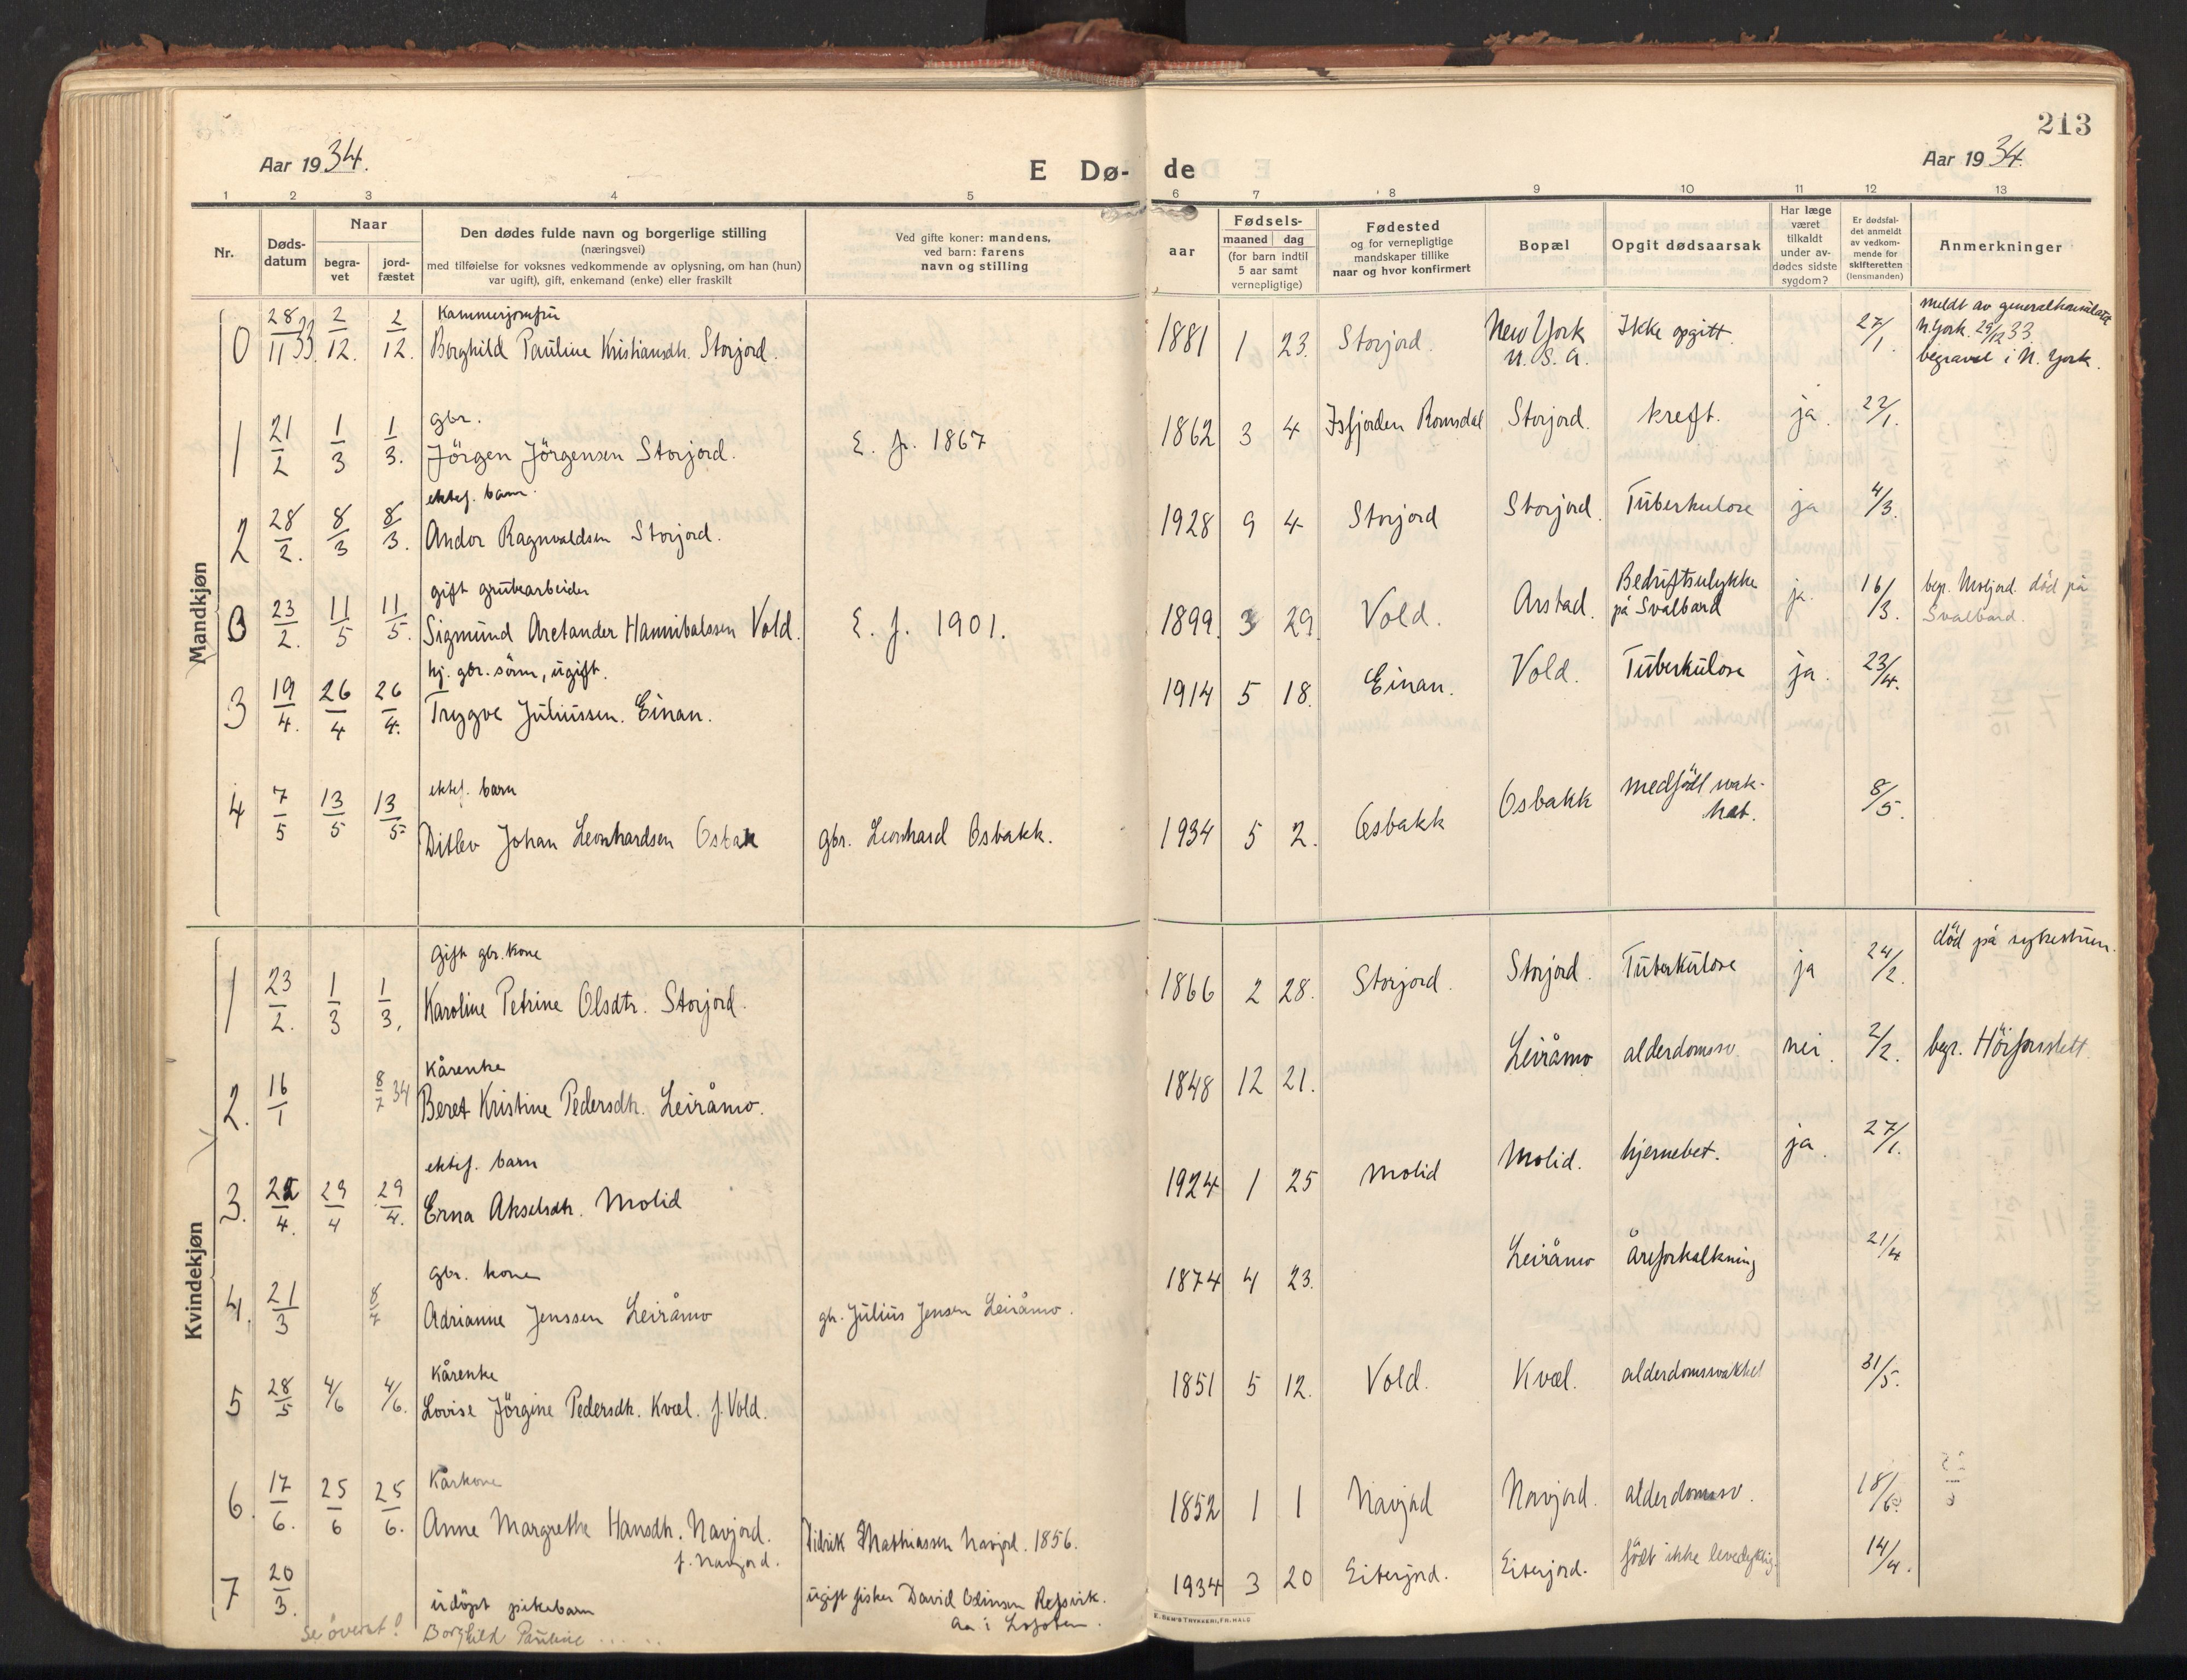 213
Aar 1934.
E Dø-de
Aar 1934.
1 2 3 4 5 6 7 8 9 10 11 12 13
Nr.
Døds-datum
Naar
begra-vet
jord-fæstet
Den dødes fulde navn og borgerlige stilling
(næringsvei)
med tilføielse for voksnes vedkommende av oplysning, om han (hun)
var ugift), gift, enkemand (enke) eller fraskilt
Ved gifte koner: mandens,
ved barn: farens
navn og stilling
aar
Fødsels-
maaned dag
(for barn indtil
5 aar samt
vernepligtige)
Fødested
og for vernepligtige
mandskaper tillike
naar og hvor konfirmert
Bopæl
Opgit dødsaarsak
Har læge
været
tilkaldt
under av-
dødes sidste
sygdom?
Er dødsfal-
det anmeldt
av vedkom-
mende for
skifteretten
(lensmanden)
Anmerkninger
Mandkjøn
Kammerjomfru
0 28/11 33. 2/12. 2/12. Borghild Pauline Kristiansdtr. Storjord. 1881 1 23. Storjord. New York U.S.A. Ikke opgitt. 27/1. meldt av generalkonsulatet
N. York. 29/12 33.
begravet i N. York.
gbr.
1 21/2 1/3 1/3. Jörgen Jörgensen Storjord. E. f. 1867 1862 3 4 Isfjorden Romsdal Storjord. kreft. ja. 22/1.
ektef. barn.
2 28/2. 8/3 8/3. Andor Ragnvaldsen Storjord. 1928 9 4 Storjord Storjord. Tuberkulose ja 4/3.
gift grubearbeider
0 23/2. 11/5 11/5. Sigmund Aretander Hannibalssen Vold. E. f. 1901. 1899. 3 29. Vold. Arstad. Bedriftsulykke
på Svalbard ja. 16/3. begr. död på
Svalbard.
kj. gbr. sönn, ugift.
3 19/4. 26/4 26/4. Trygve Juliussen. Einan. 1914 5 18. Einan. Vold. Tuberkulose ja. 23/4.
ektef. barn
4 7/5 13/5 13/5 Ditlev Johan Leonhardsen Osbak gbr. Leonhard Osbakk. 1934 5 2. Osbakk Osbakk medfödt svak-
het. 8/5.
Kvindekjøn
Gift gbr. kone
1 23/2. 1/3 1/3, Karoline Petrine Olsdtr. Storjord. 1866 2 28. Storjord. Storjord. Tuberkulose ja 24/2. död på sykestuen.
Kårenke
2. 16/1 8/7 34 Beret Kristine Pedersdtr. Leiråmo. 1848 12 21. Leiråmo alderdomssv. nei. 2/2. begr.
ektef. barn
3. /4. 29/4 29/4. Erna Akselsdtr. Molid 1924 1 25 Molid Molid. hjernebet. ja. 27/1.
Gbr. kone
4. 21/3 8/7 Adrianne Jenssen Leiråmo gb. Julius Jensen Leiråmo. 1874 4 23. Leiråmo Åreforkalkning 21/4
Kårenke
5 28/5 4/6 4/6. Lovise Jörgine Pedersdtr. Kvæl. f. Vold. 1851 5 12. Vold. Kvæl. alderdomssvakhet 31/5.
Kårkone
6. 17/6. 25/6 25/6. Anne Margrethe Hansdtr. Navjord.
f. Navjord. Didrik Mathiassen Navjord. 1856. 1852 1 1 Navjord Navjord. alderdomssv. 18/6.
7 20/3. udöpt pikebarn ugift fisker David Odinsen Refsvik.
Aa i Lofoten. 1934 3 20 Eiterjord. Eiterjord. födt ikke levedyktig. 14/4.
Se överst! Borghild Pauline ......
E. SEM'S TRYKKERI, FR.HALD